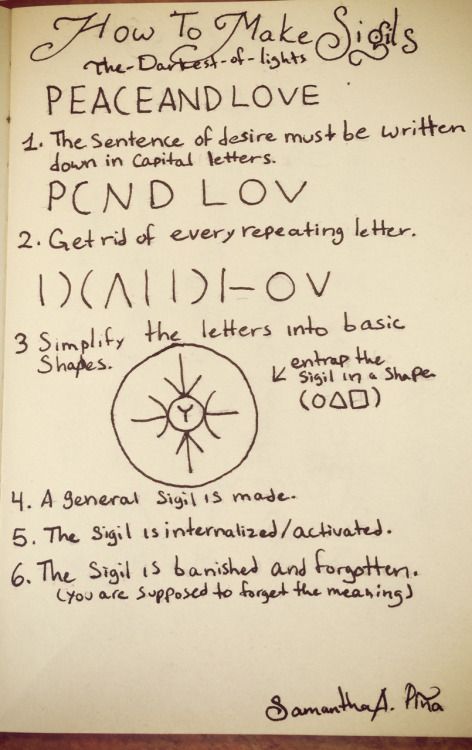 How To Make Sigils
The-Darkest-of-lights
PEACEANDLOVE
1. The Sentence of desire must be written
down in Capital letters.
PCND LOV
2. Get rid of every repeating letter.
3 Simplify the letters into basic
Shapes.
entrap the
Sigil in a Shape
4. A general Sigil is made.
5. The Sigil is internalized/activated.
6. The Sigil is banished and forgotten.
(You are supposed to forget the meaning)
Samantha A. Piña